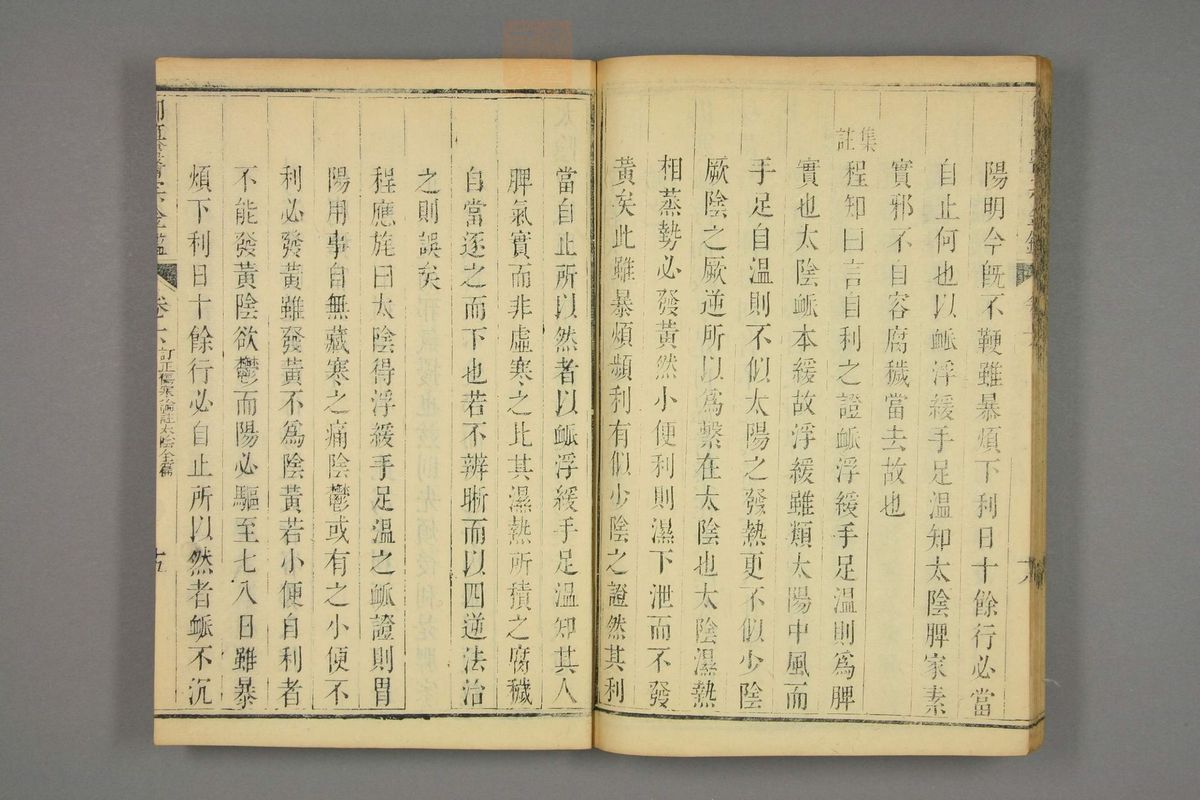 陽明今既不鞕雖暴煩下利日十餘行必當
自止何也以衇浮緩手足溫知太陰脾家素
實邪不自容腐穢當去故也
集註
程知曰言自利之證衇浮緩手足溫則爲脾
實也太陰衇本緩故浮緩雖類太陽中風而
手足自溫則不似太陽之發熱更不似少陰
厥陰之厥逆所以爲繫在太陰也太陰濕熱
相蒸勢必發黃然小便利則濕下泄而不發
黃矣此雖暴煩頻利有似少陰之證然其利
當自止所以然者以衇浮緩手足溫知其人
脾氣實而非虛寒之比其濕熱所積之腐穢
自當逐之而下也若不辨晰而以四逆法治
之則誤矣
程應旄曰太陰得浮緩手足溫之衇證則胃
陽用事自無藏寒之痛陰鬱或有之小便不
利必發黃雖發黃不爲陰黃若小便自利者
不能發黃陰欲鬱而陽必驅至七八日雖暴
煩下利日十餘行必自止所以然者衇不沉
訂正傷寒論註太陰全篇